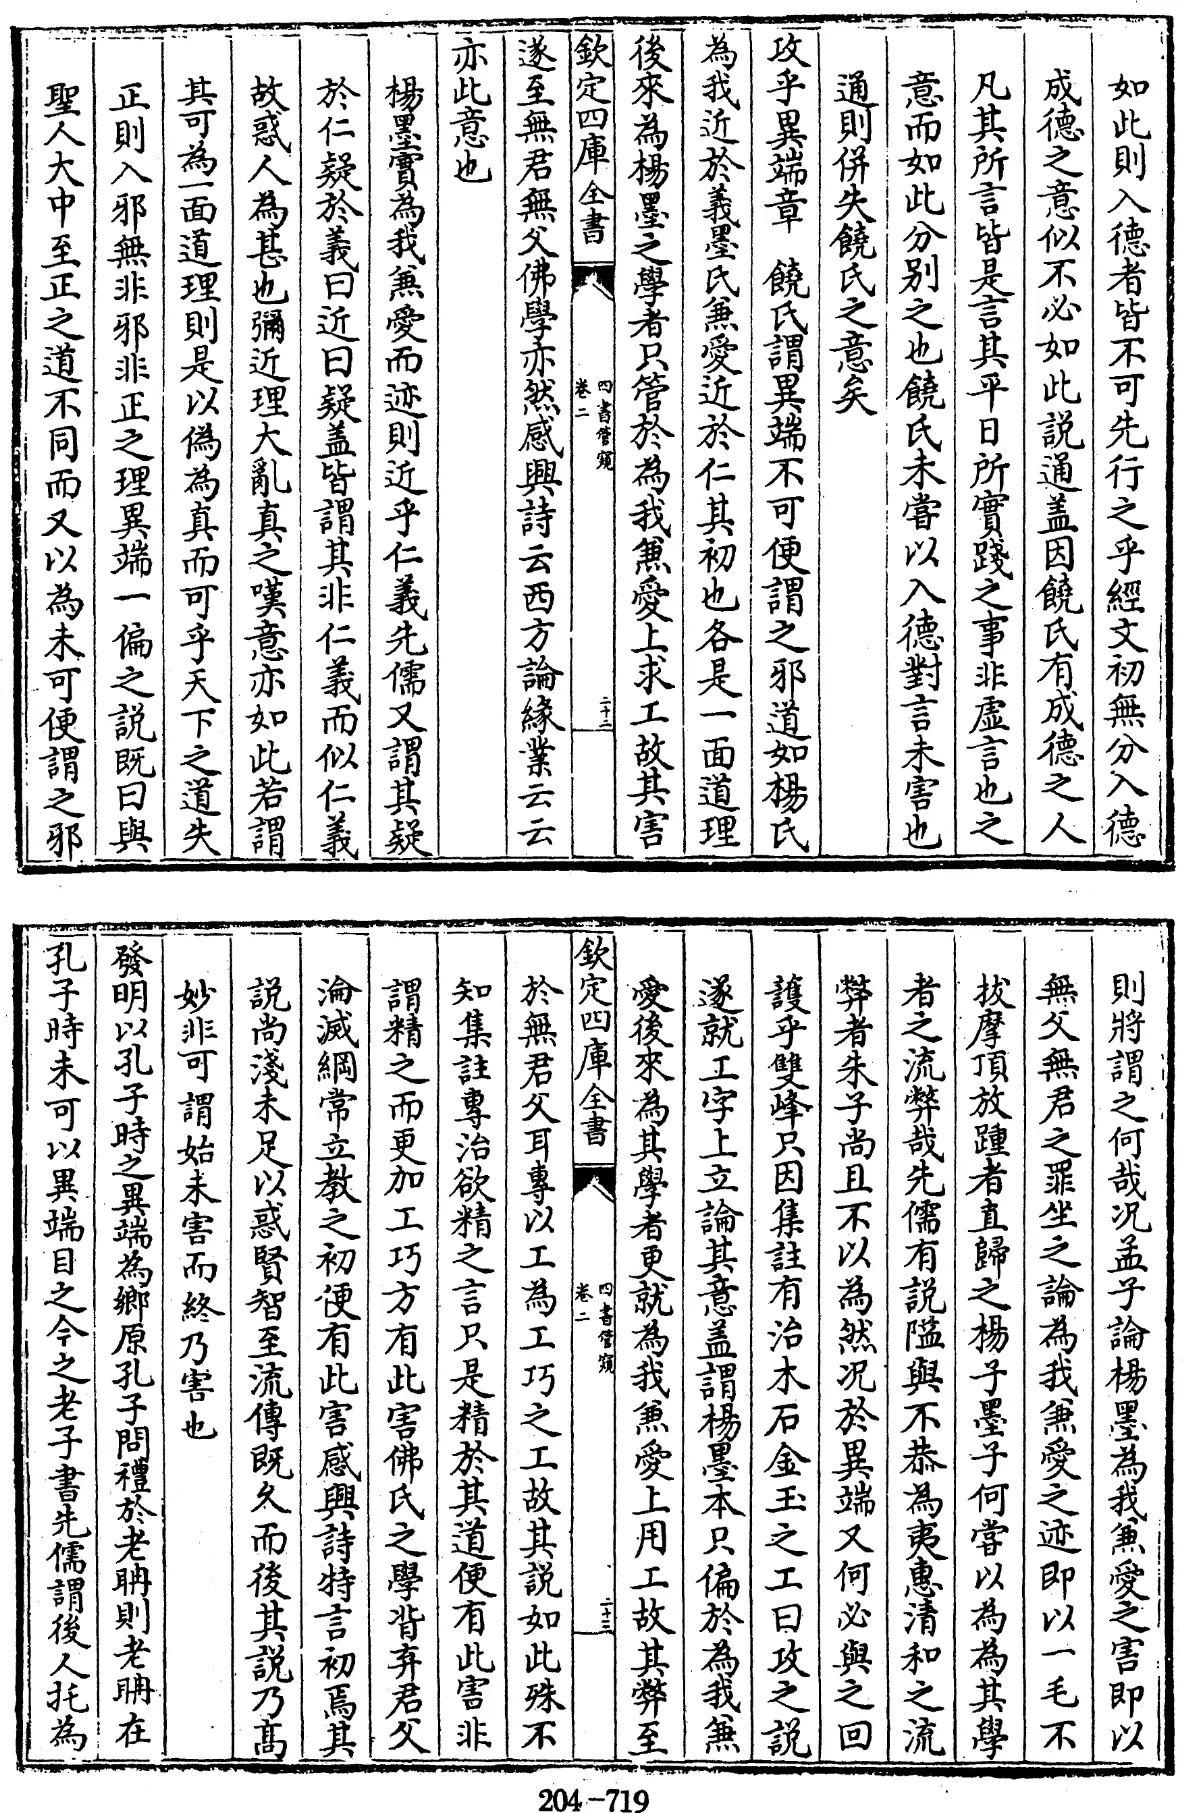 如此則入德者皆不可先行之乎經文初無分入德
成德之意似不必如此說通盖因饒氏有成德之人
凡其所言皆是言其平日所實踐之事非虛言也之
意而如此分別之也饒氏未嘗以入德對言未害也
通則併失饒氏之意矣
攻乎異端章　饒氏謂異端不可便謂之邪道如楊氏
為我近於義墨氏兼愛近於仁其初也各是一面道理
後來為楊墨之學者只管於為我兼愛上求工故其害
欽定四庫全書
四書管窺
卷二
二十二
遂至無君無父佛學亦然感興詩云西方論緣業云云
亦此意也
楊墨實為我兼愛而迹則近乎仁義先儒又謂其疑
於仁疑於義曰近曰疑盖皆謂其非仁義而似仁義
故惑人為甚也彌近理大亂真之嘆意亦如此若謂
其可為一面道理則是以偽為真而可乎天下之道失
正則入邪無非邪非正之理異端一偏之說既曰與
聖人大中至正之道不同而又以為未可便謂之邪
則將謂之何哉况孟子論楊墨為我兼愛之害即以
無父無君之罪坐之論為我兼愛之迹即以一毛不
拔摩頂放踵者直歸之楊子墨子何嘗以為為其學
者之流弊哉先儒有說隘與不恭為夷惠清和之流
弊者朱子尚且不以為然况於異端又何必與之回
護乎雙峰只因集註有治木石金玉之工曰攻之說
遂就工字上立論其意盖謂楊墨本只偏於為我兼
愛後來為其學者更就為我兼愛上用工故其弊至
欽定四庫全書
四書管窺
卷二
二十三
於無君父耳專以工為工巧之工故其說如此殊不
知集註專治欲精之言只是精於其道便有此害非
謂精之而更加工巧方有此害佛氏之學背弃君父
淪滅綱常立教之初便有此害感興詩特言初焉其
說尚淺未足以惑賢智至流傳既久而後其說乃高
妙非可謂始未害而終乃害也
發明以孔子時之異端為鄉原孔子問禮於老聃則老聃在
孔子時未可以異端目之今之老子書先儒謂後人托為
204-719